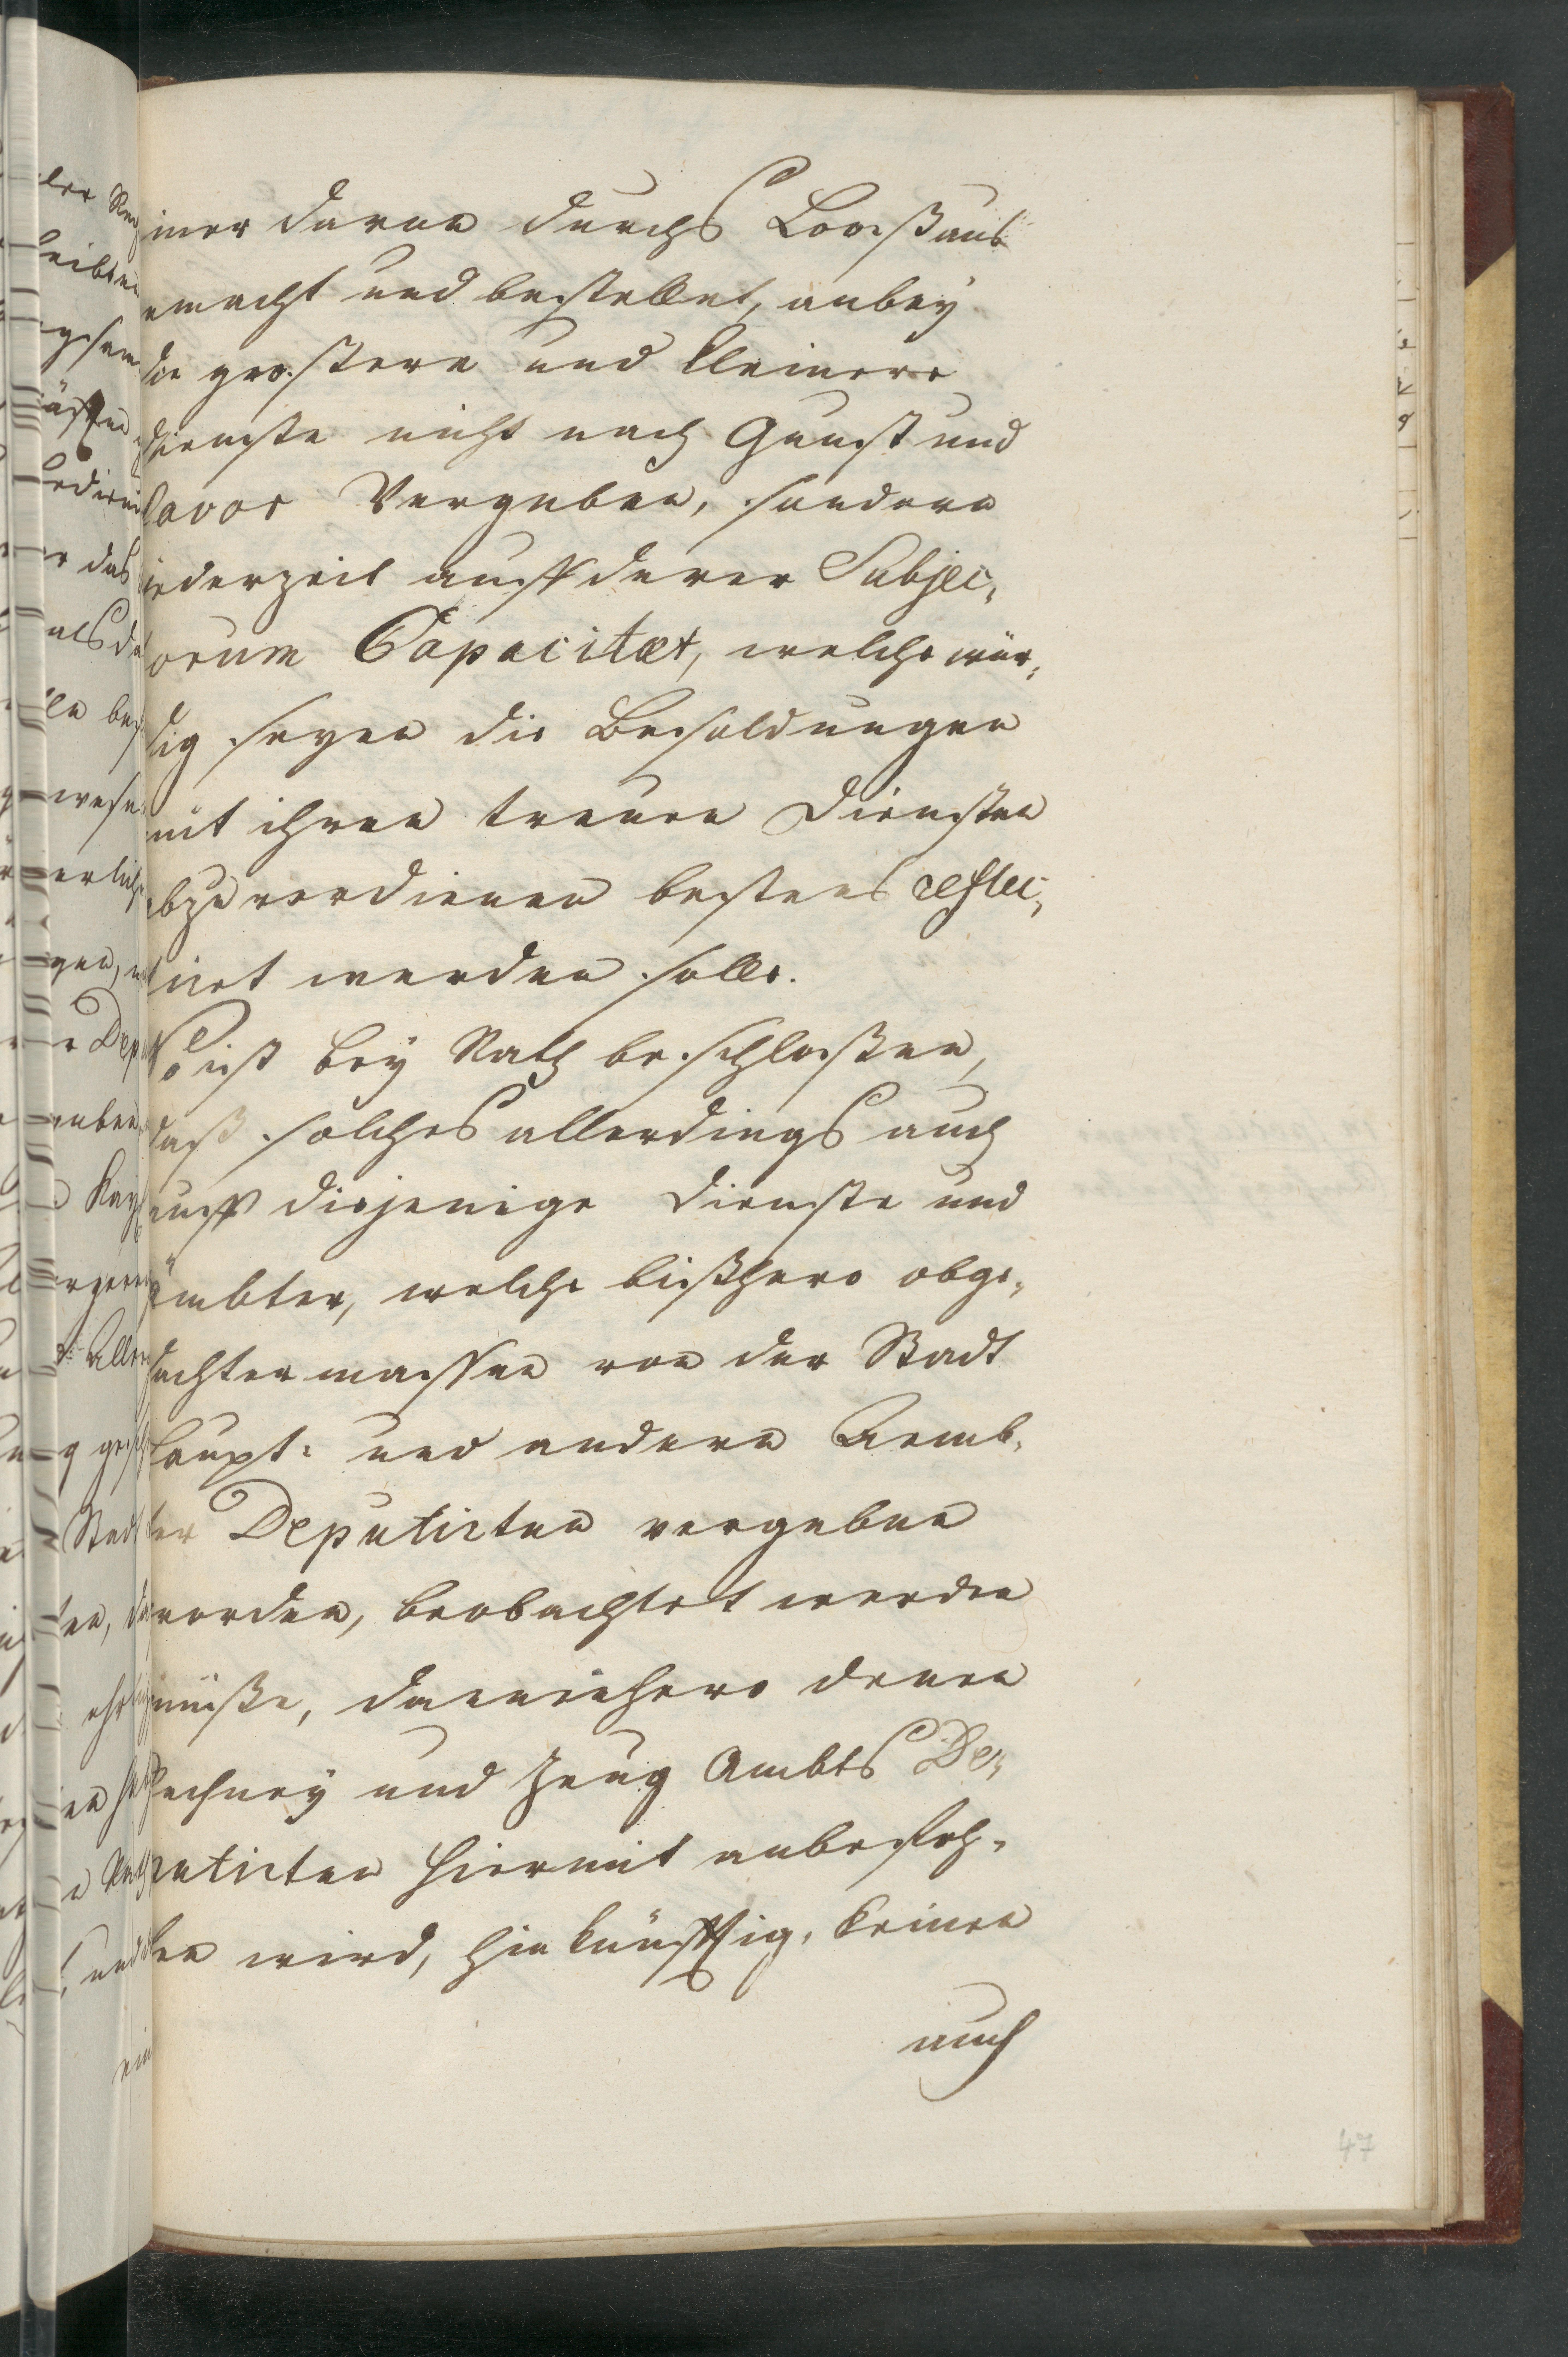 iner daran durchs Looß auß
emacht und bestellet, anbey
die grostere und kleinere
dienste nicht nach Gunst und
Favor Vergeben, sondern
jederzeit auff derer Subjec„
orum Capacitæt, welche wür„
dig seyen die Besoldungen
mit ihren treuen Diensten
abzuverdienen bestens reflec„
tirt werden solle.
So ist bey Rath beschloßen,
daß solches allerdings auch
auff diejenige Dienste und
ämbter, welche bißhero obge„
dachtermassen von der Stadt
haupt- und andern Aemb„
ter Deputirten vergeben
worden, beobachtet werden
müße, dannenhero denen
Rechney und Zeug Ambts De„
putirten hiermit anbefoh„
len wird, hinkünfftig, keinen
auch
47